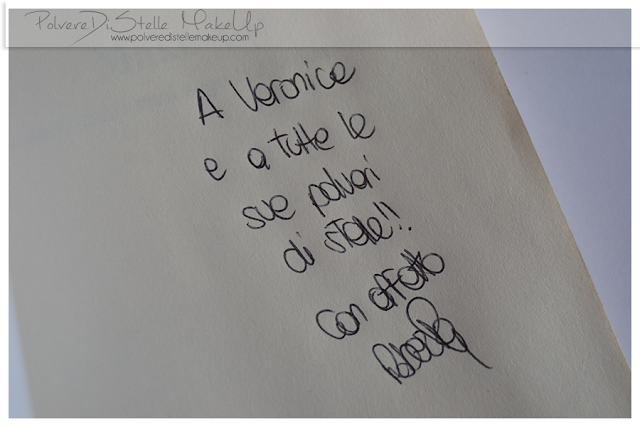 PolvereDiStelle MakeUp
www.polveredistellemakeup.com
A Veronica
e a tutte le
sue polveri
di stelle!!
con affetto